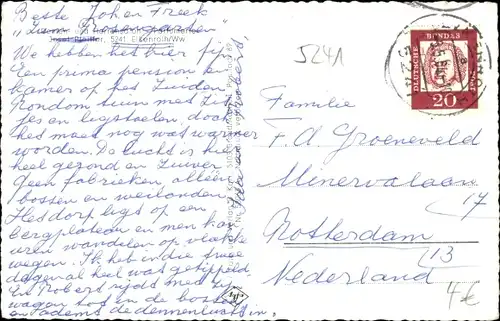 Beste Joh en Freek
Josef Pfeiffer, 5241 Elkenroth/Ww.
We hebben het hier fijn
Een prima pension en
kamer op het Zuiden.
Rondom tuin met zit-
jes en ligstoelen, doch
het moet nog wat warmer
worden. De lucht is hier
heel gezond en zuiver
Geen fabrieken, alleen
bossen en weilanden.
Het dorp ligt op een
bergplateau en men kan
uren wandelen op vlakke
wegen. Ik heb in die twee
dagen al heel wat getippeld
En Robert rijdt met z'n
wagen tot in de bossen
en ademt de dennenlucht in.
5241
DEUTSCHE BUNDESPOST
20
Familie
F. A. Groeneveld
Minervalaan
17
Rotterdam
13
Nederland
4 €